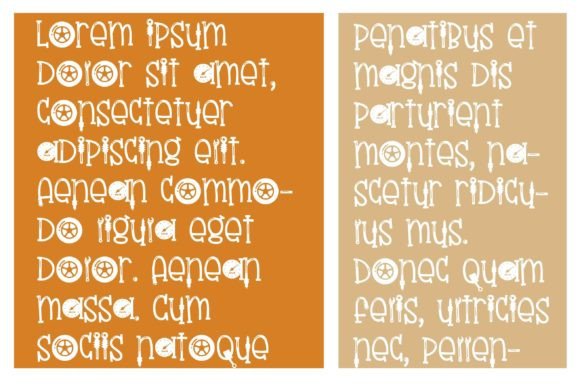 Lorem ipsum
dolor sit amet,
consectetuer
adipiscing elit.
Aenean commo-
do ligula eget
dolor. Aenean
massa. Cum
sociis natoque
penatibus et
magnis dis
parturient
montes, na-
scetur ridicu-
lus mus.
Donec quam
felis, ultricies
nec, pellen-